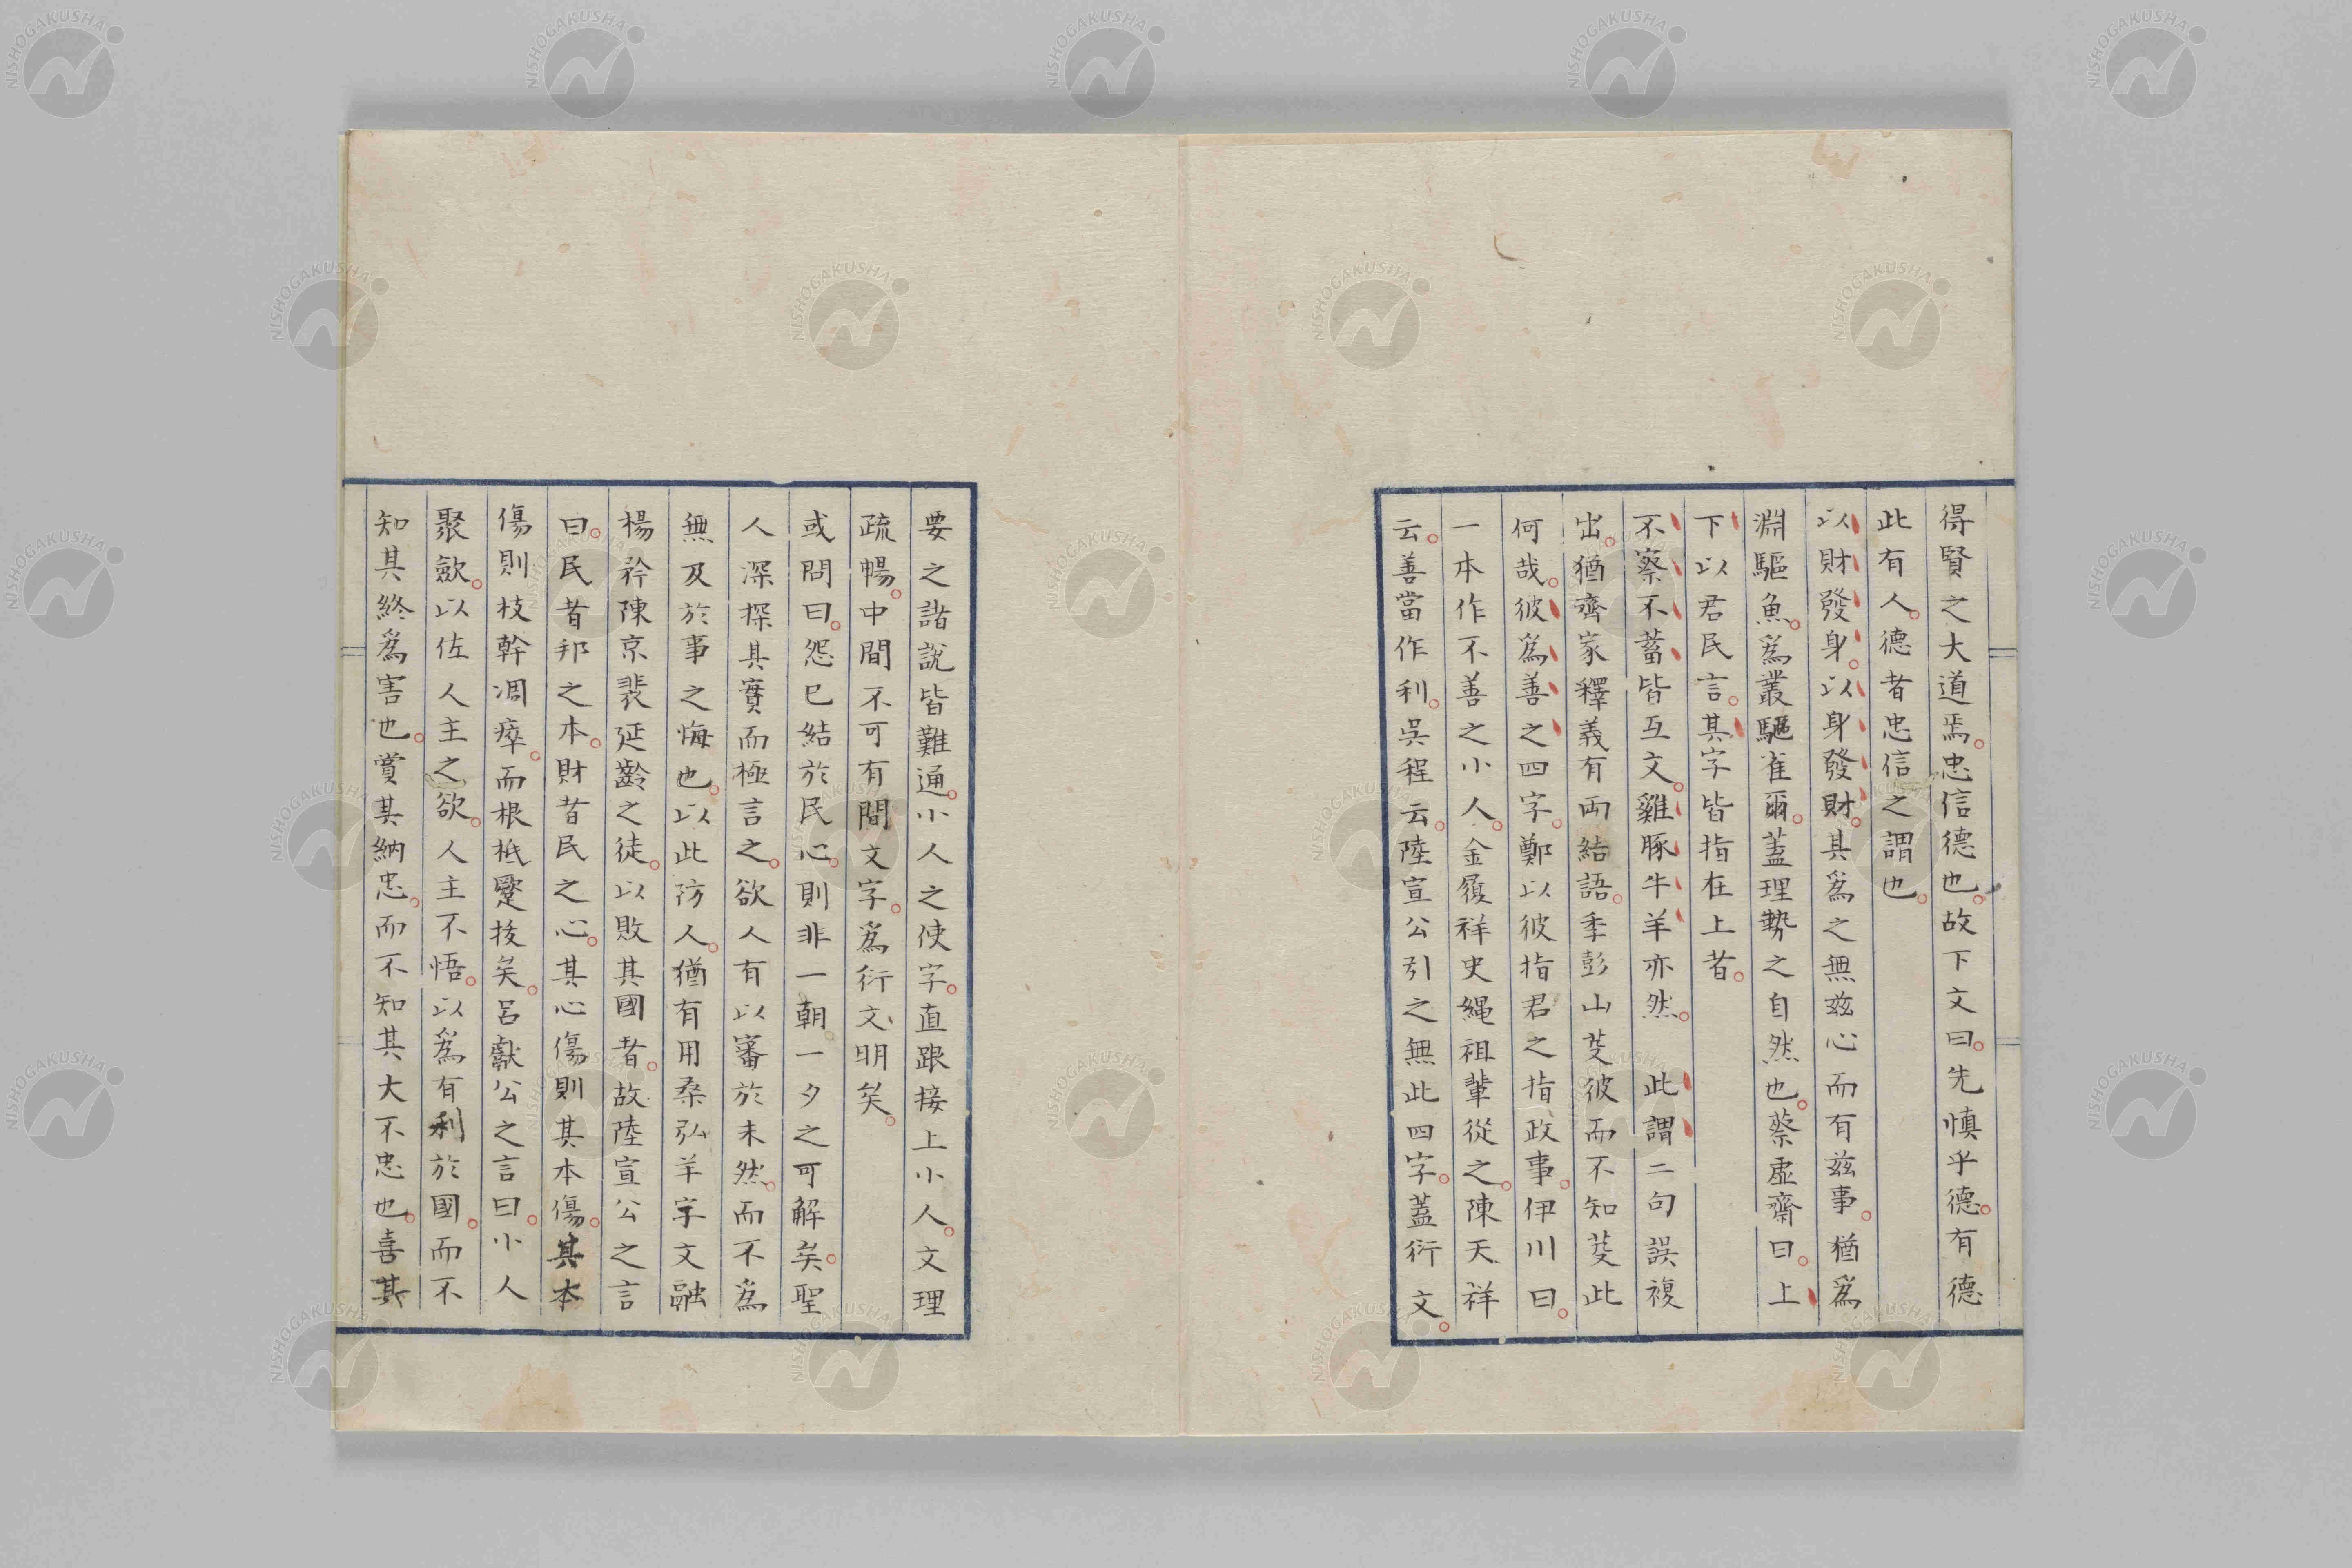 得賢之大道焉忠信德也故下文曰先慎乎德有德
此有人德者忠信之謂也
以財發身以身發財其爲之無茲心而有茲事猶爲
淵驅魚爲叢驅雀爾蓋理勢之自然也蔡虛齋曰上
下以君民言其字皆指在上者
不察不蓄皆互文雞豚牛羊亦然　此謂二句誤複
出猶齊家釋義有兩結語季彭山芟彼而不知芟此
何哉彼爲善之四字鄭以彼指君之指政事伊川曰
一本作不善之小人金履祥史繩祖輩從之陳天祥
云善當作利吳程云陸宣公引之無此四字蓋衍文
要之諸說皆難通小人之使字直跟接上小人文理
疏暢中間不可有間文字爲衍文明矣
或問曰怨已結於民心則非一朝一夕之可解矣聖
人深探其實而極言之欲人有以審於未然而不爲
無及於事之悔也以此防人猶有用桑弘羊宇文融
楊矜陳京裴延齡之徒以敗其國者故陸宣公之言
曰民者邦之本財者民之心其心傷則其本傷其本
傷則枝幹凋瘁而根柢蹷拔矣呂獻公之言曰小人
聚歛以佐人主之欲人主不悟以爲有利於國而不
知其終爲害也賞其納忠而不知其大不忠也喜其